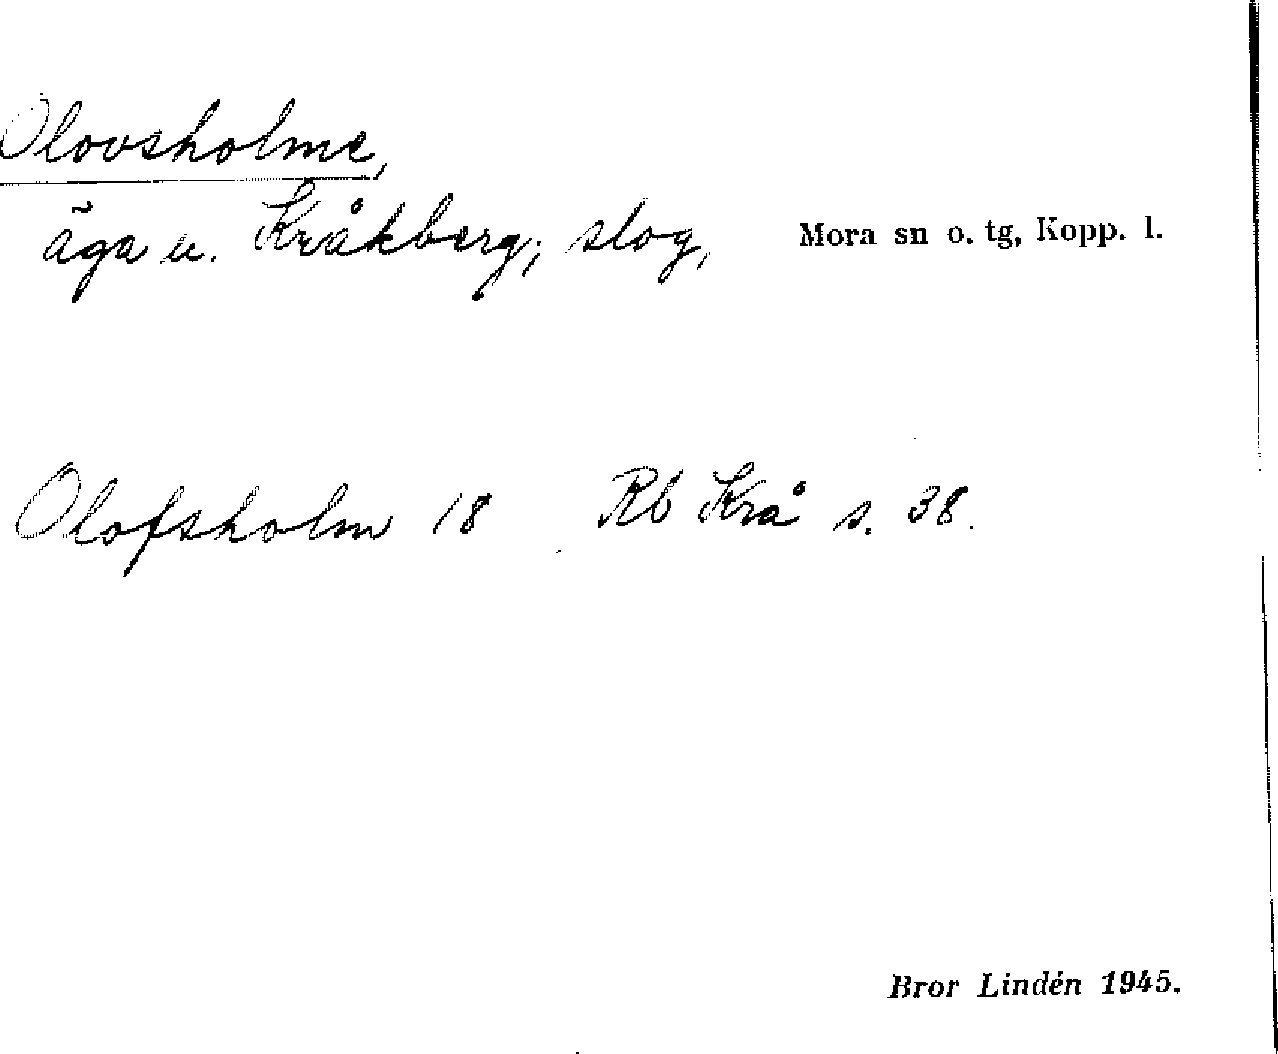 Olovsholme,
äga u. Kråkberg; slog, Mora sn o. tg, Kopp. l.
Olofsholm 18 Rb Krå s. 38.
Bror Lindén 1945.